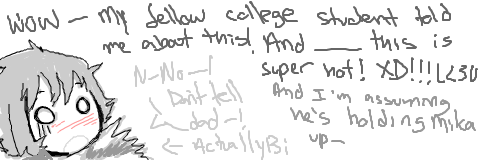 WOW - My fellow college student told
me about this! And ____ this is
super hot! XD!!! L<3U
N-No-!
Don't tell
dad-!
<- ActuallyBi
And I'm assuming
he's holding Mika
up-